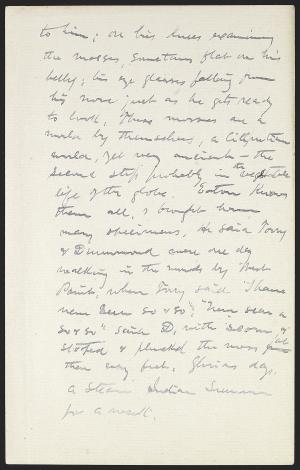 to him; on his knees examining
the mosses, sometimes flat on his
belly; his eye glasses falling from
his nose just as he gets ready
to look. These mosses are a
world by themselves, a Lilliputian
world, yet very ancient – the
second step probably in the vegetable
life of the globe. Eaton knows
them all, I brought home
many specimens. He said Torry
& Drummond were one day
walking in the woods by West
Point, when Torry said "I have
never seen so & so", "Never seen a
so & so" said D, with scorn, &
stooped & plucked the moss at
their very feet. Glorious day,
a steam Indian Summer
for a result.